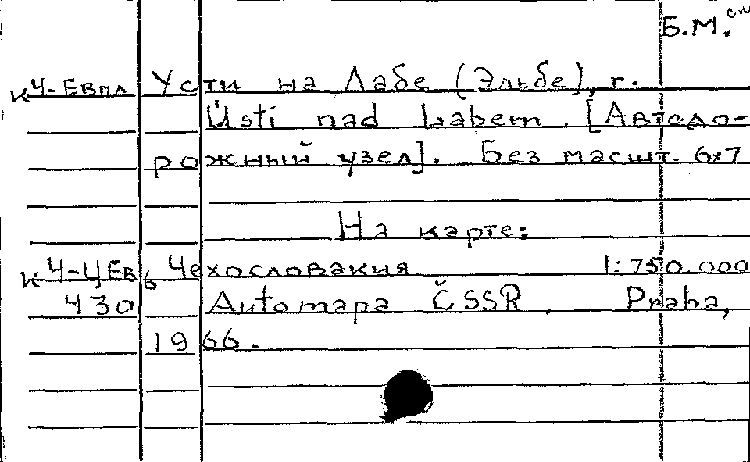 Б.М. см
К4-Евпл Усти на Лабе (Эльбе), г.
Ústí nad Labem. [Автодо-
рожный узел]. Без масшт. 6x7
На карте:
К4-ЦЕв Чехословакия 1:750.000
430 Automapa ČSSR. Praha,
1966.